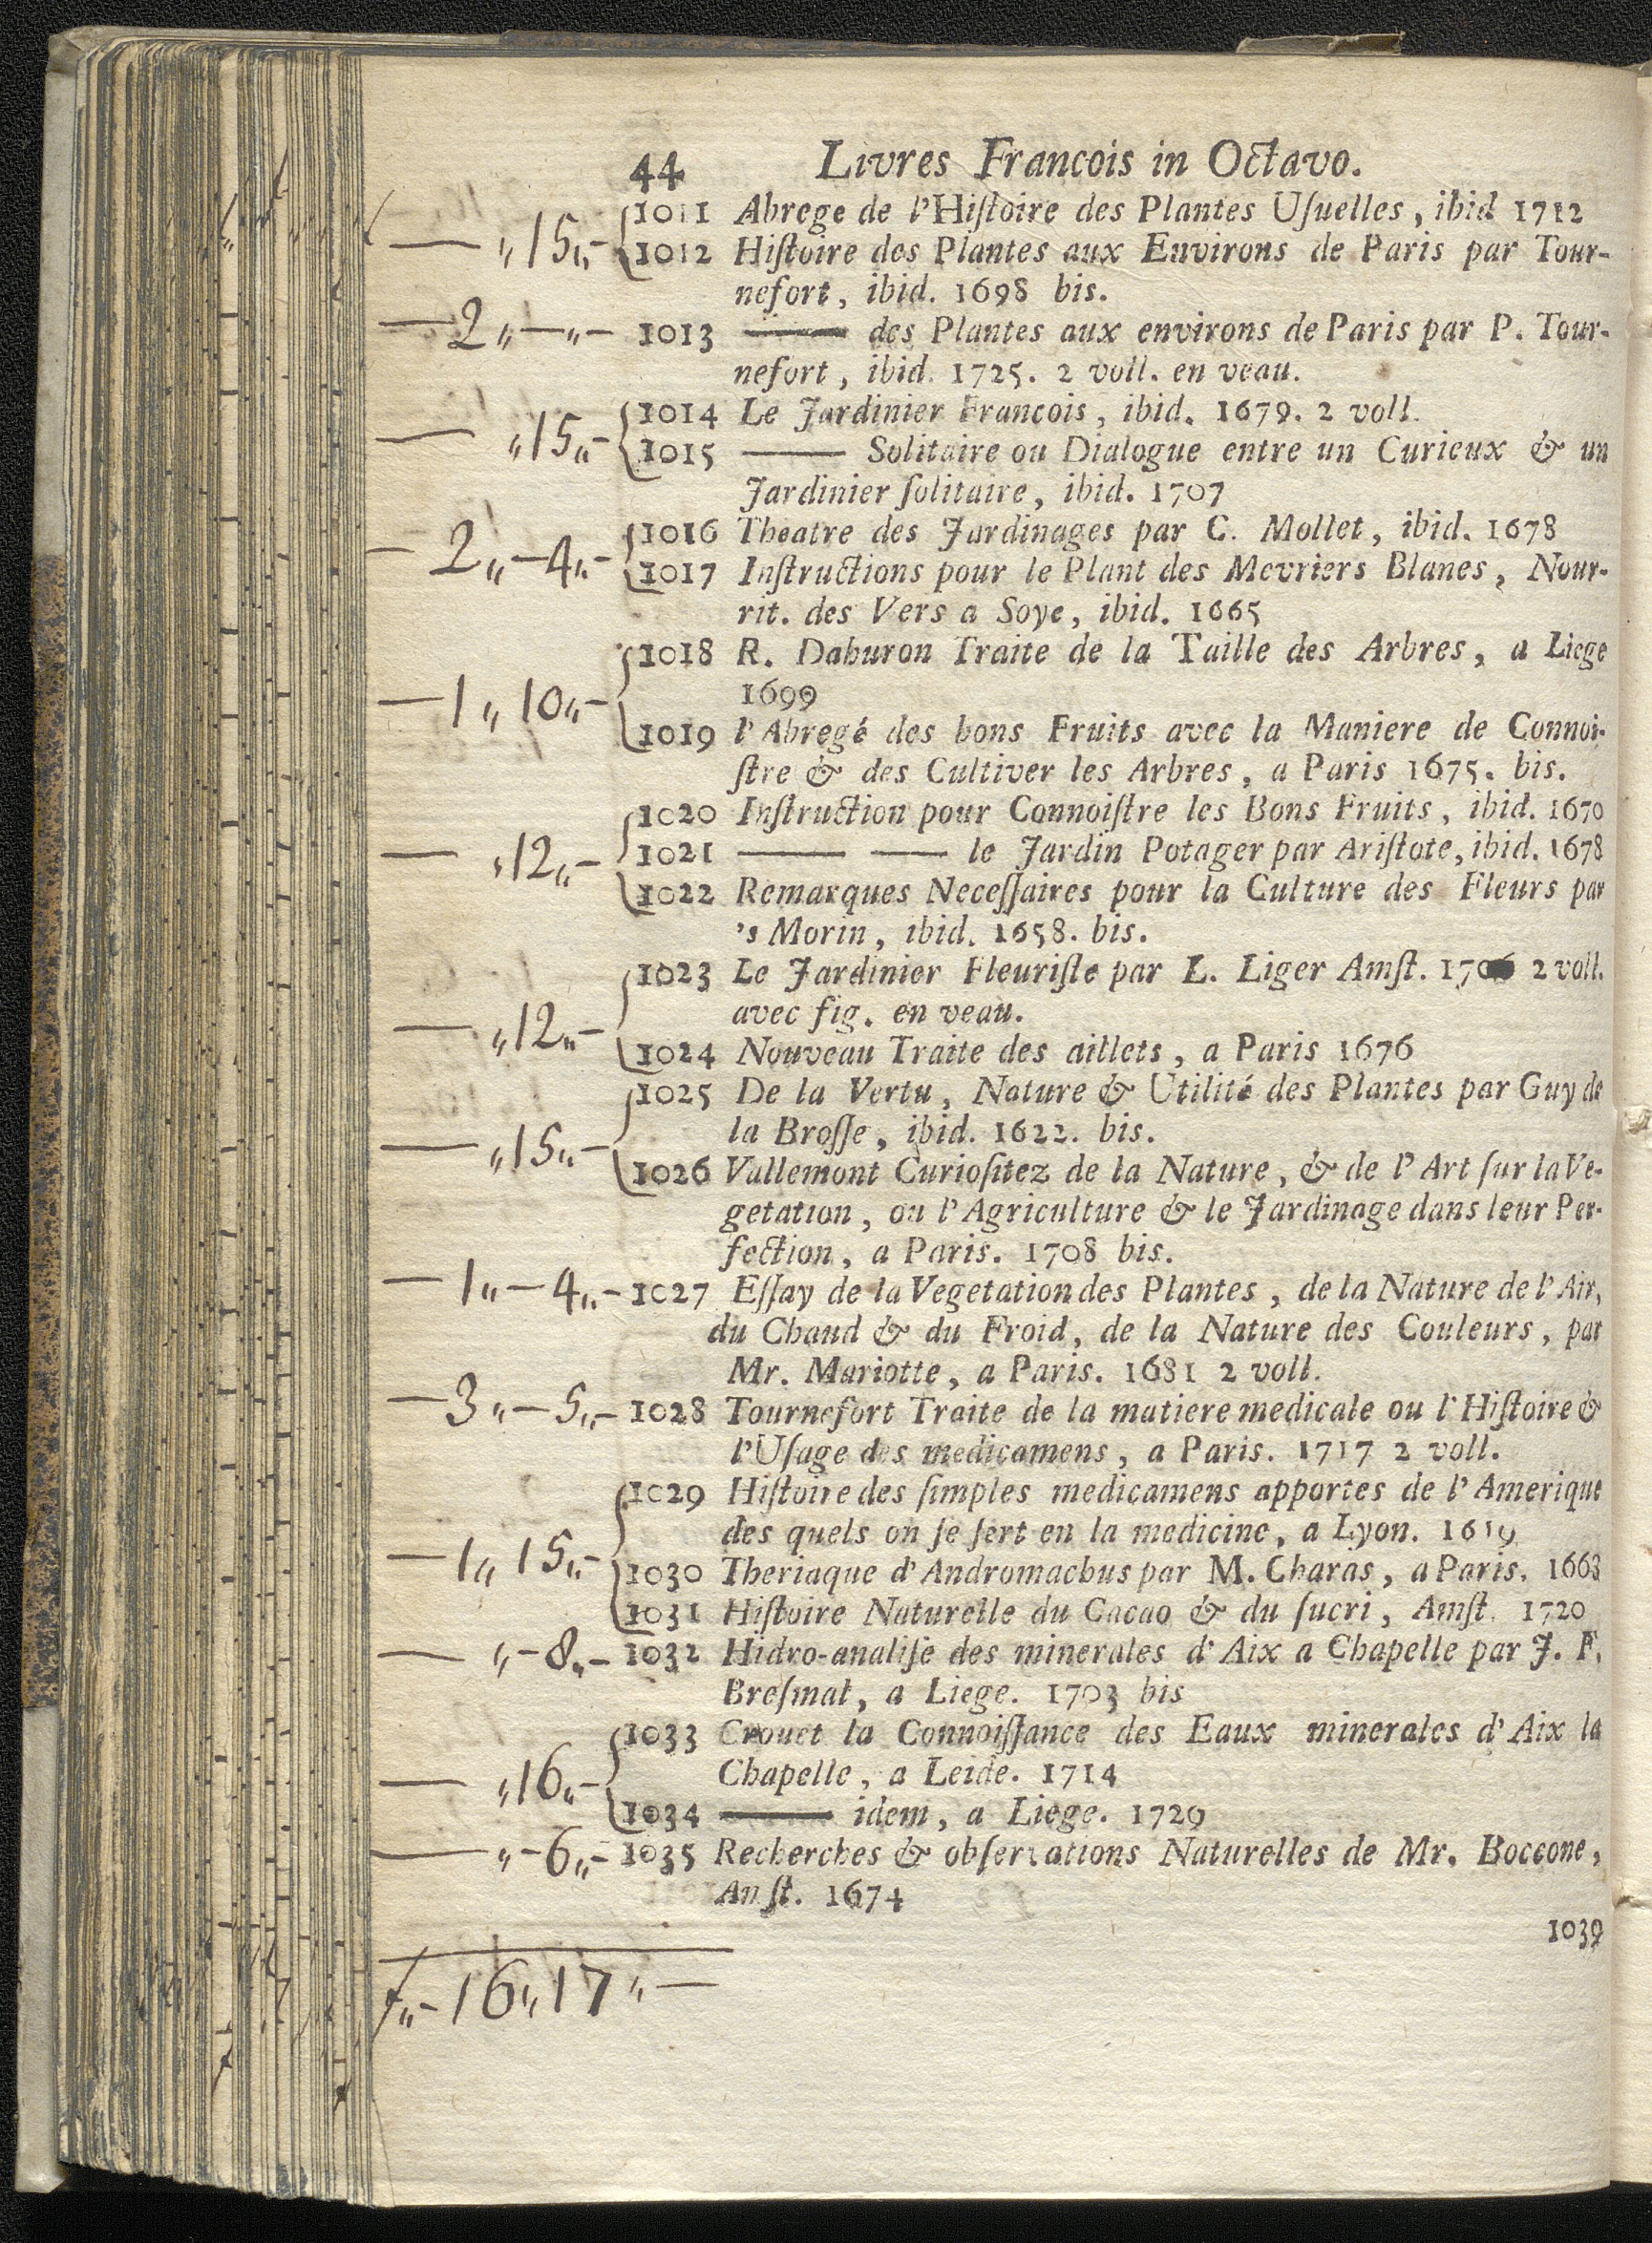 44 Livres Francois in Octavo.
1011 Abrege de l'Hiſtoire des Plantes Uſuelles, ibid 1712
— „15„- 1012 Hiſtoire des Plantes aux Environs de Paris par Tour-
nefort, ibid. 1698 bis.
— 2„—„— 1013 —— des Plantes aux environs de Paris par P. Tour-
nefort, ibid. 1725. 2 voll. en veau.
1014 Le Jardinier Francois, ibid. 1679. 2 voll.
— „15„- 1015 —— Solitaire ou Dialogue entre un Curieux & un
Jardinier ſolitaire, ibid. 1707
1016 Theatre des Jardinages par C. Mollet, ibid. 1678
— 2„—4„- 1017 Inſtructions pour le Plant des Mevriers Blanes, Nour-
rit. des Vers a Soye, ibid. 1665
1018 R. Dahuron Traite de la Taille des Arbres, a Liege
— 1„10„- 1699
1019 l'Abregé des bons Fruits avec la Maniere de Connoi-
ſtre & des Cultiver les Arbres, a Paris 1675. bis.
1020 Inſtruction pour Connoiſtre les Bons Fruits, ibid. 1670
— „12„- 1021 —— —— le Jardin Potager par Ariſtote, ibid. 1678
1022 Remarques Neceſſaires pour la Culture des Fleurs par
's Morin, ibid. 1658. bis.
1023 Le Jardinier Fleuriſte par L. Liger Amſt. 1706 2 voll.
— „12„- avec fig. en veau.
1024 Nouveau Traite des aillets, a Paris 1676
1025 De la Vertu, Nature & Utilité des Plantes par Guy de
— „15„- la Broſſe, ibid. 1622. bis.
1026 Vallemont Curioſitez de la Nature, & de l'Art ſur la Ve-
getation, ou l'Agriculture & le Jardinage dans leur Per-
fection, a Paris. 1708 bis.
— 1„—4„- 1027 Eſſay de la Vegetation des Plantes, de la Nature de l'Air,
du Chaud & du Froid, de la Nature des Couleurs, par
Mr. Mariotte, a Paris. 1681 2 voll.
— 3„—5„- 1028 Tournefort Traite de la matiere medicale ou l'Hiſtoire &
l'Uſage des medicamens, a Paris. 1717 2 voll.
1029 Hiſtoire des ſimples medicamens apportes de l'Amerique
des quels on ſe ſert en la medicine, a Lyon. 1619
— 1„15„- 1030 Theriaque d'Andromachus par M. Charas, a Paris. 1668
1031 Hiſtoire Naturelle du Cacao & du ſucri, Amſt. 1720
— „-8„- 1032 Hidro-analiſe des minerales d'Aix a Chapelle par J. F.
Breſmal, a Liege. 1703 bis
1033 Crouet la Connoiſſance des Eaux minerales d'Aix la
— „16„- Chapelle, a Leide. 1714
1034 —— idem, a Liege. 1729
— „-6„- 1035 Recherches & obſervations Naturelles de Mr. Boccone,
Amſt. 1674
1039
ƒ„-16„17„—